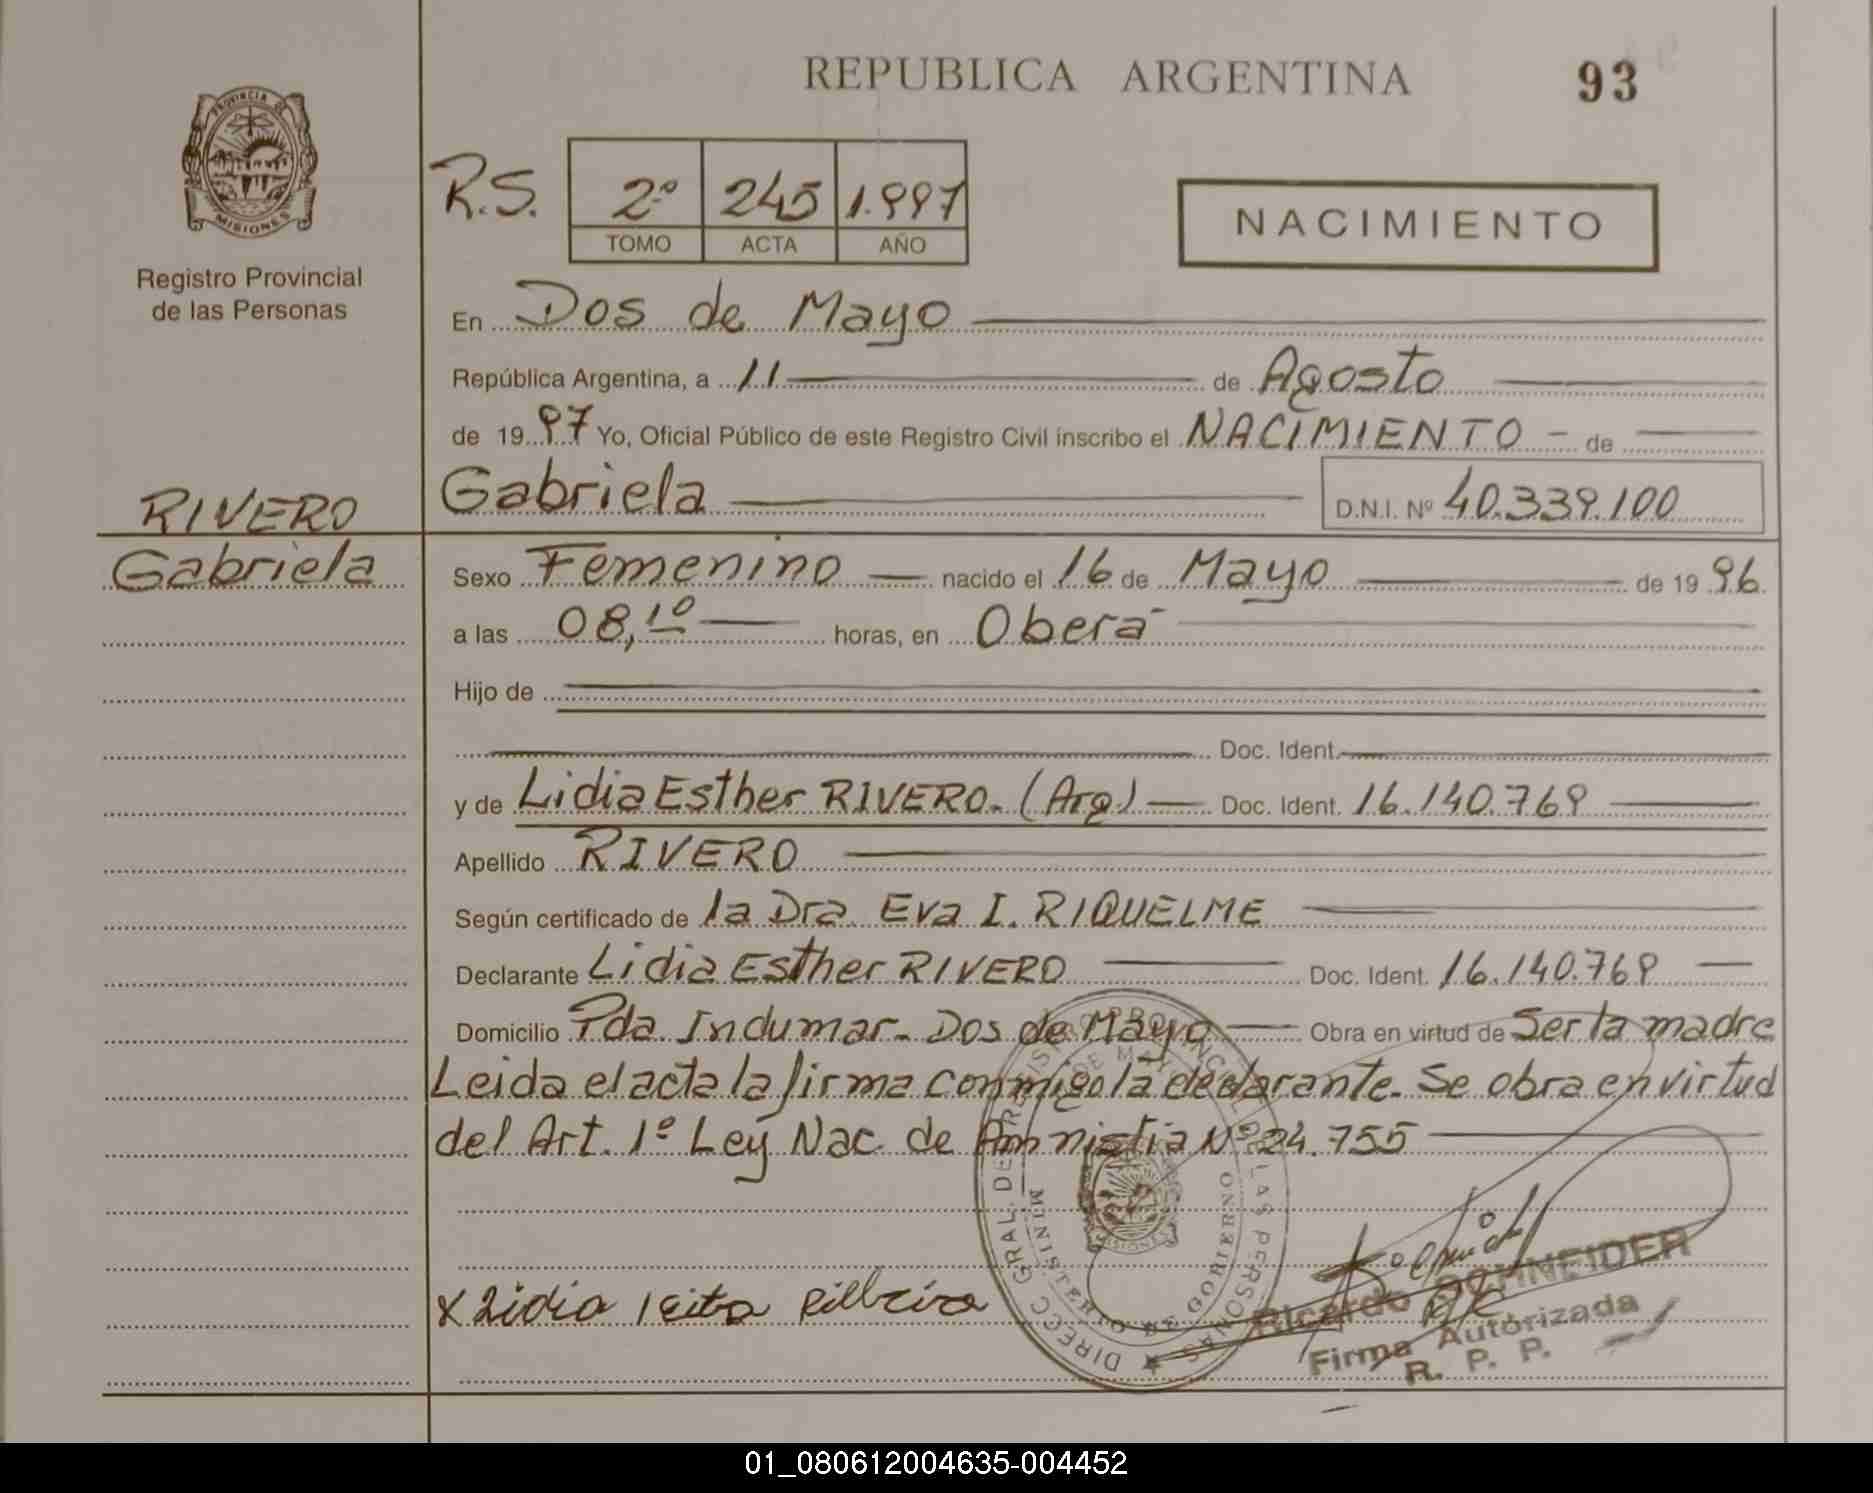 REPUBLICA ARGENTINA
93
PROVINCIA DE
MISIONES
Registro Provincial
de las Personas
R.S. 2º 245 1.997
TOMO ACTA AÑO
NACIMIENTO
En Dos de Mayo
República Argentina, a 11 de Agosto
de 1997 Yo, Oficial Público de este Registro Civil inscribo el NACIMIENTO - de
RIVERO
Gabriela
Gabriela D.N.I. Nº 40.339.100
Sexo Femenino nacido el 16 de Mayo de 1996
a las 08,10 horas, en Oberá
Hijo de
Doc. Ident.
y de Lidia Esther RIVERO. (Arg) Doc. Ident. 16.140.769
Apellido RIVERO
Según certificado de la Dra. Eva I. RIQUELME
Declarante Lidia Esther RIVERO Doc. Ident. 16.140.769
Domicilio Pda. Indumar - Dos de Mayo Obra en virtud de Ser la madre
Leida el acta la firma conmigo la declarante. Se obra en virtud
del Art. 1º Ley Nac. de Amnistia Nº 24.755
DIRECC GRAL. DE REGISTRO PROVINCIAL DE LAS PERSONAS
DE MAYO
MINISTERIO DE GOBIERNO
MISIONES
x Lidia
Ricardo SCHNEIDER
Firma Autorizada
R. P. P.
01_080612004635-004452